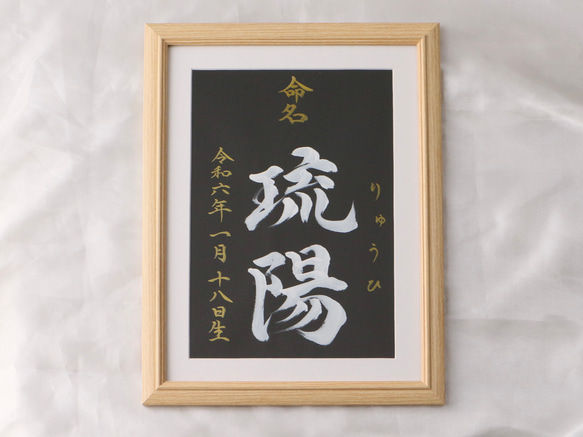 命名
りゅうひ
琉陽
令和六年一月十八日生